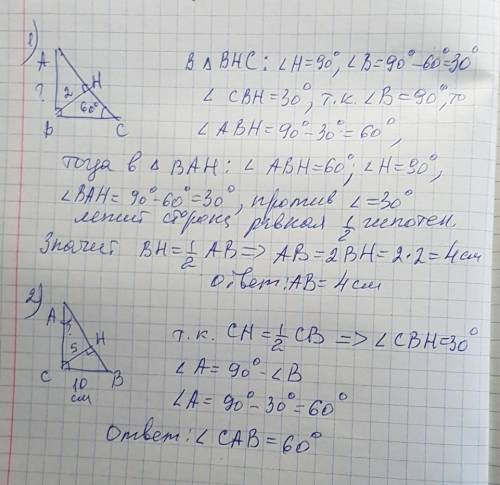 1)
A
?
2
H
60°
B
C
В △ BHC: ∠H=90°, ∠B=90°-60°=30°
∠ CBH=30°, т.к. ∠B=90°, то
∠ABH=90°-30°=60°,
тогда в △ BAH: ∠ ABH=60°; ∠H=90°,
∠BAH= 90°-60°=30°, против ∠=30°
лежит сторона равная 1/2 гипотен.
Значит BH=1/2 AB=> AB=2BH=2·2=4см
Ответ: AB=4см
2)
A
?
5
H
C
B
10
см
т.к. CH=1/2 CB => ∠CBH=30°
∠A= 90°-∠B
∠A= 90°-30°=60°
Ответ: ∠ CAB=60°